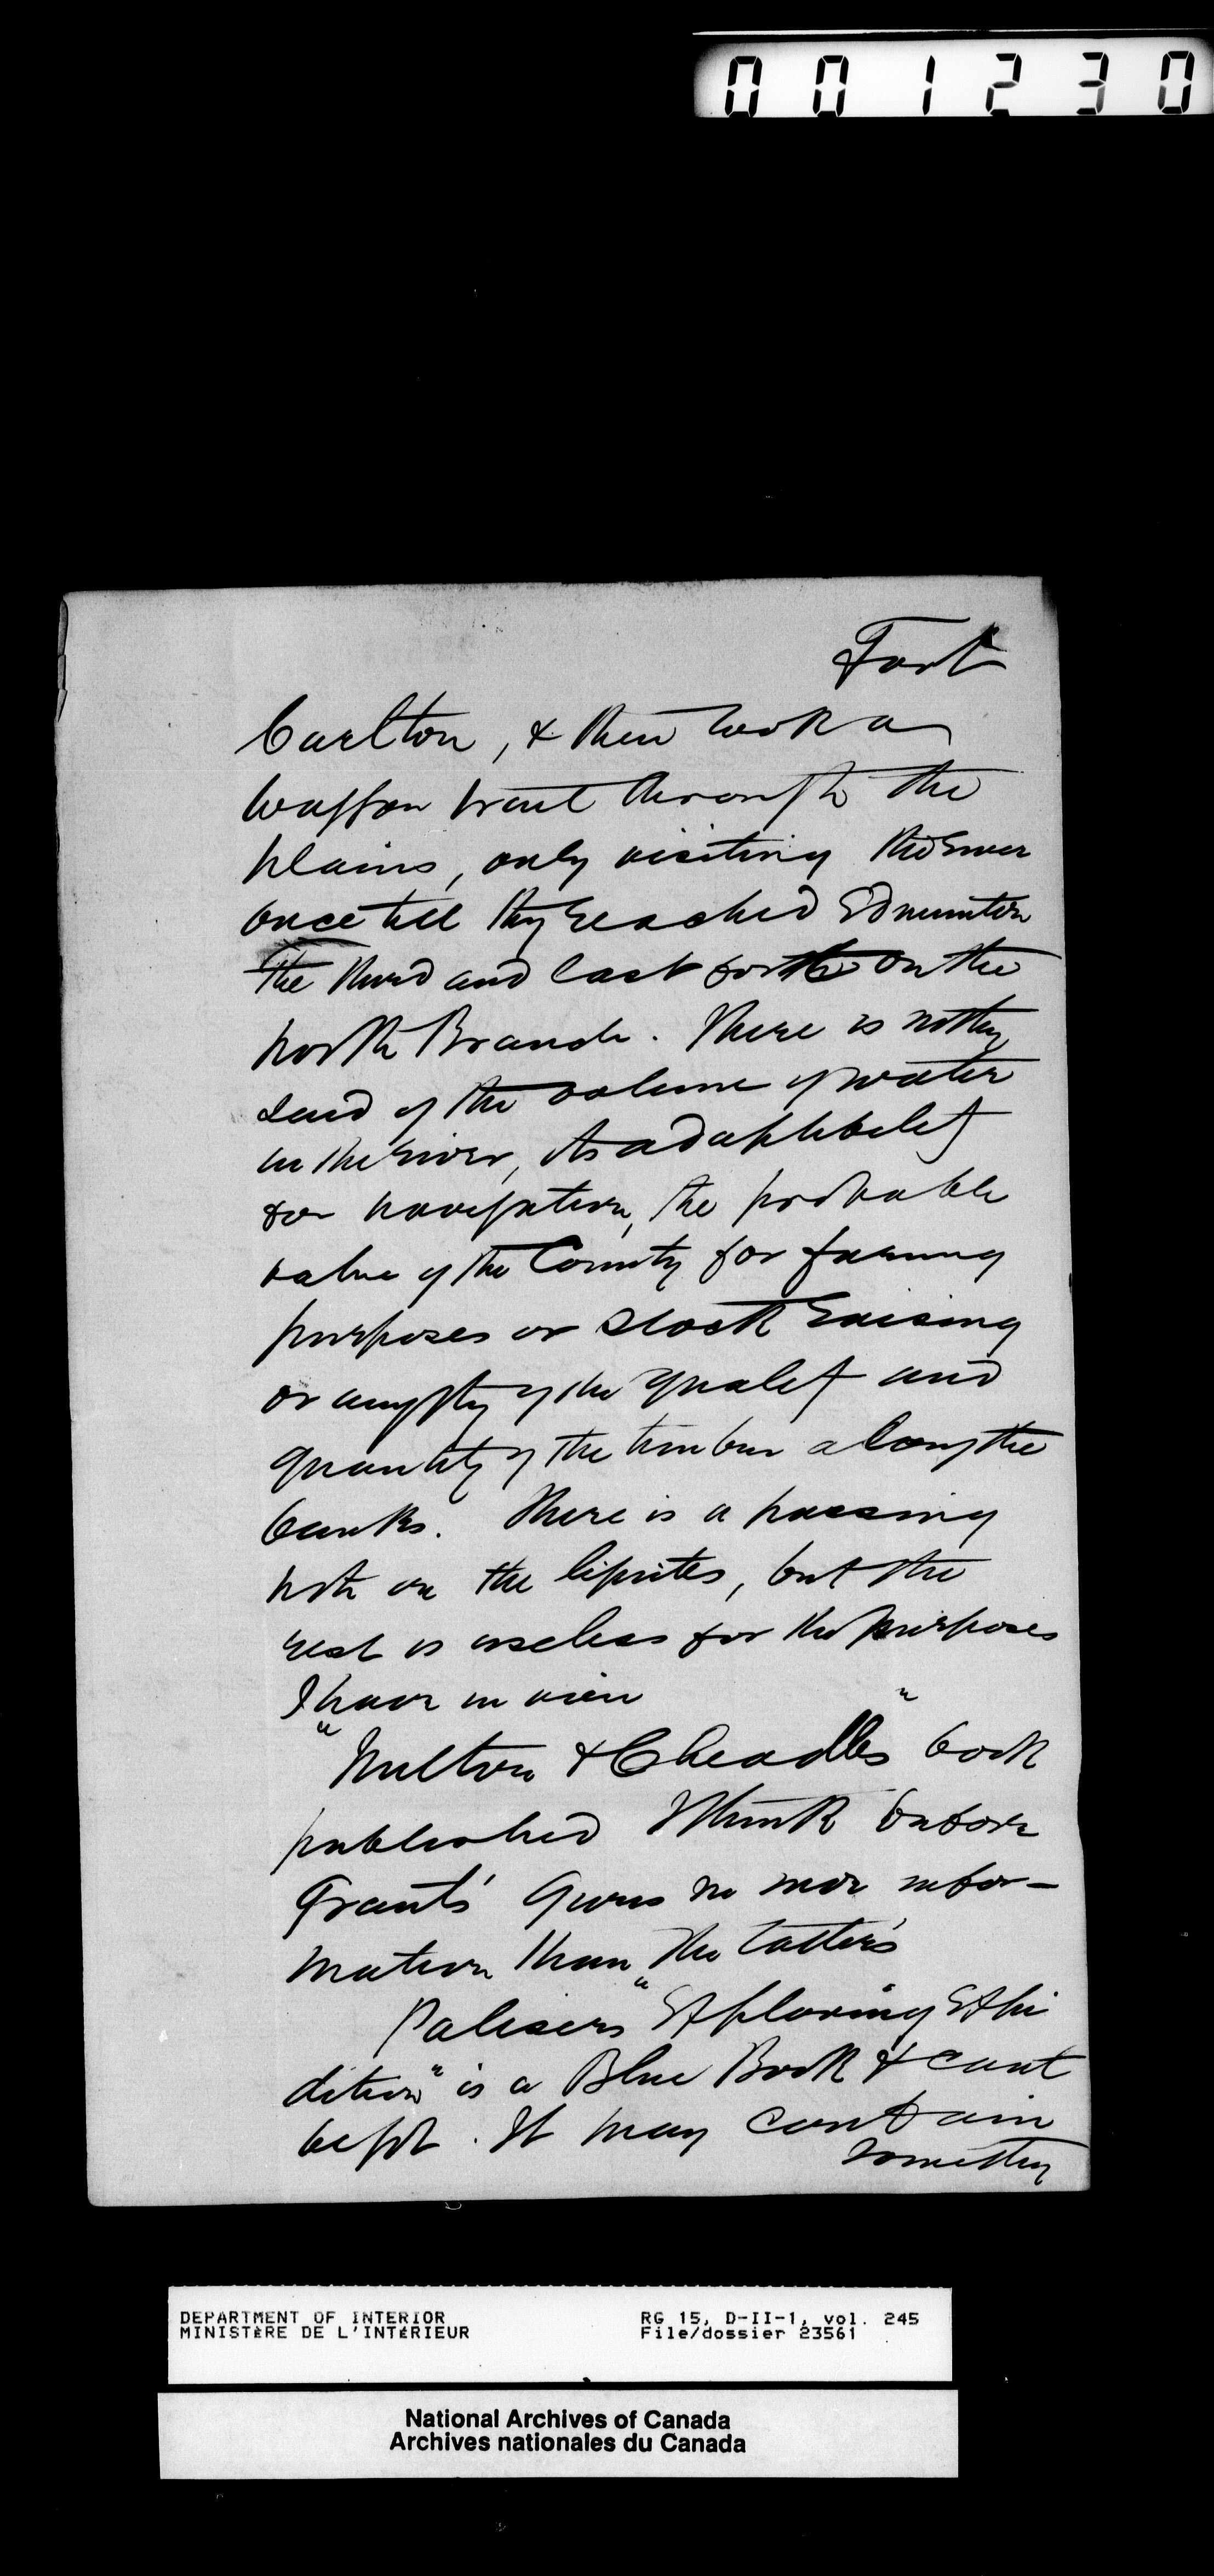 001230
Fort
Carlton, & then took a
waggon trail through the
plains, only visiting the river
once till they reached Edmonton
The third and last fort on the
North Branch. There is nothing
said of the volume of water
in the river, its adaptibility
for navigation, the probable
value of the County for farming
purposes or stock raising
or anything of the quality and
quantity of the timber along the
banks. There is a passing
note on the lignites, but the
rest is useless for the purposes
I have in view
"Milton & Cheadles" book
published I think before
Grant's gives no more infor-
mation than the latter's
Palisers "Exploring Expi
dition" is a Blue Book & cant
be got. It may contain
something
DEPARTMENT OF INTERIOR RG 15, D-II-1, vol. 245
MINISTÈRE DE L'INTÉRIEUR File/dossier 23561
National Archives of Canada
Archives nationales du Canada